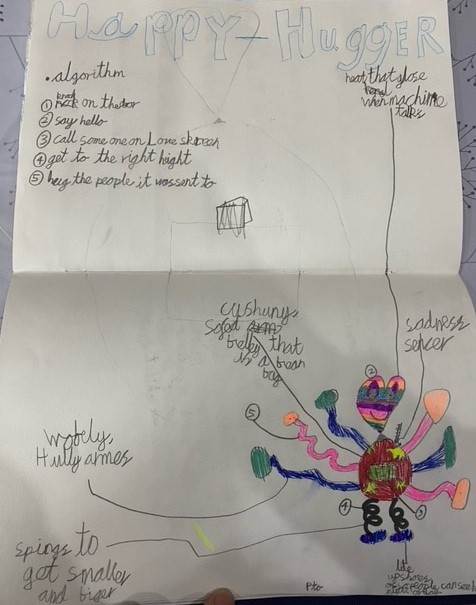 HAPPY-HUGGER
• algorithm
① knock on the door
② say hello
③ call some one on Love skreen
④ get to the right height
⑤ hug the people it was sent to
heart that glose
when machine
talks
cushuny
belley that
is a bean
bag
sadness
senser
②
⑤
wobely,
Hully armes
④
③
spings to
get smalley
and biger
lite
up shoes
Pto